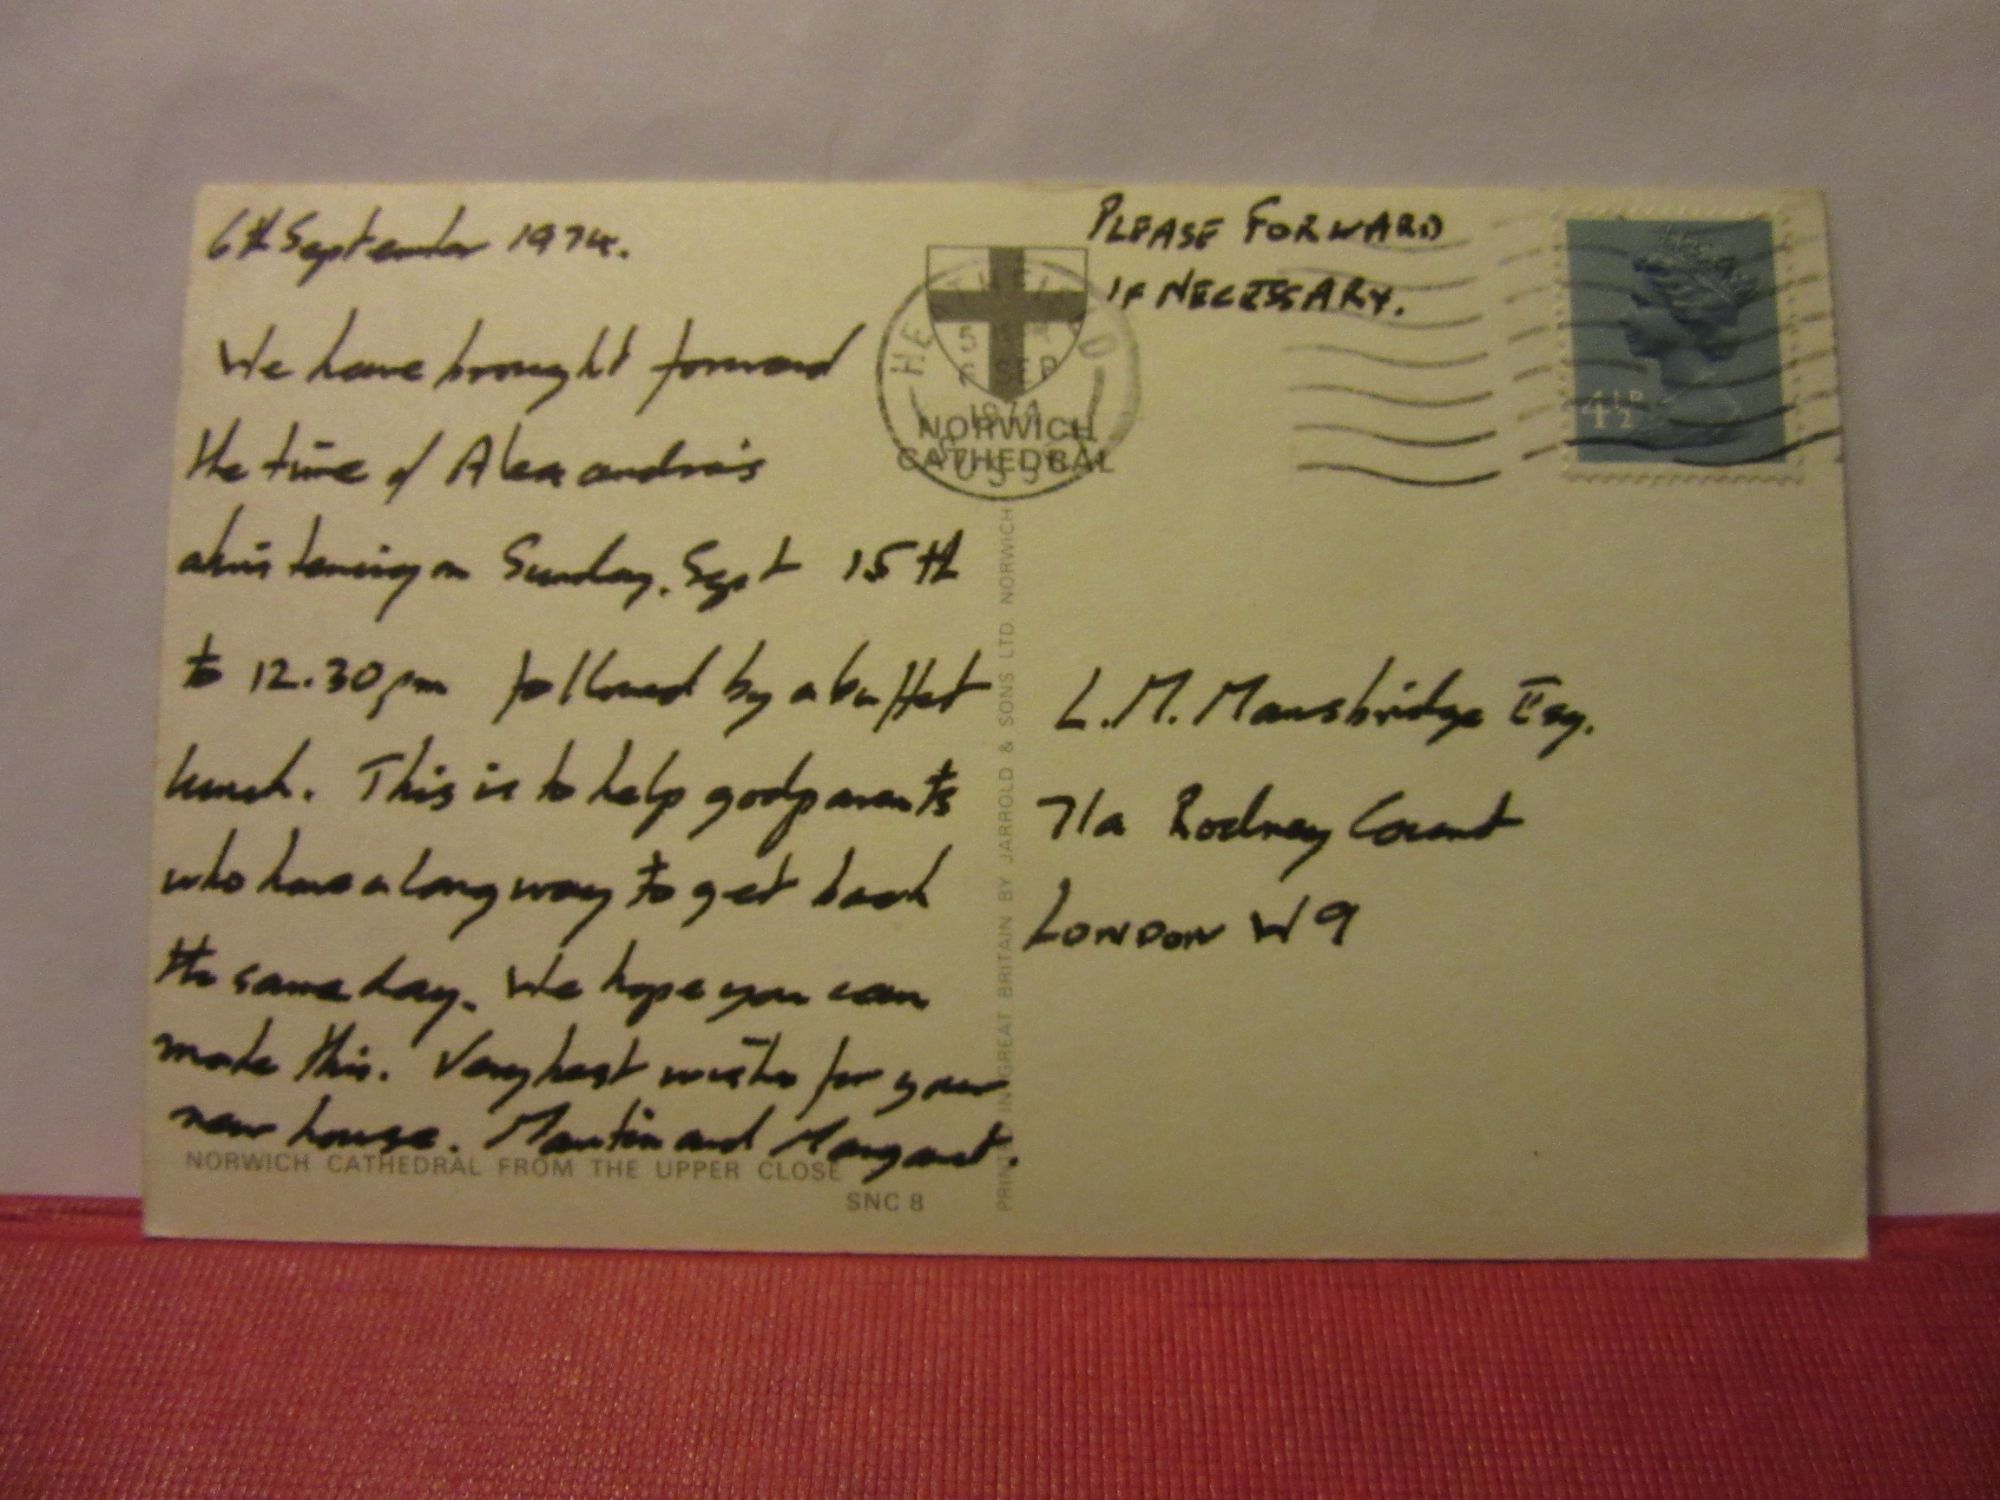 6th September 1974.
We have brought forward
the time of Alexandra's
christening on Sunday, Sept 15th
to 12.30pm followed by a buffet
lunch. This is to help godparents
who have a long way to get back
the same day. We hope you can
make this. Very best wishes for your
new house. Martin and Margaret.
NORWICH CATHEDRAL FROM THE UPPER CLOSE
SNC 8
NORWICH
CATHEDRAL
SEP
1974
PRINTED IN GREAT BRITAIN BY JARROLD & SONS LTD. NORWICH
PLEASE FORWARD
IF NECESSARY.
4½P
L.M. Mansbridge Esq.
71a Rodney Court
LONDON W9